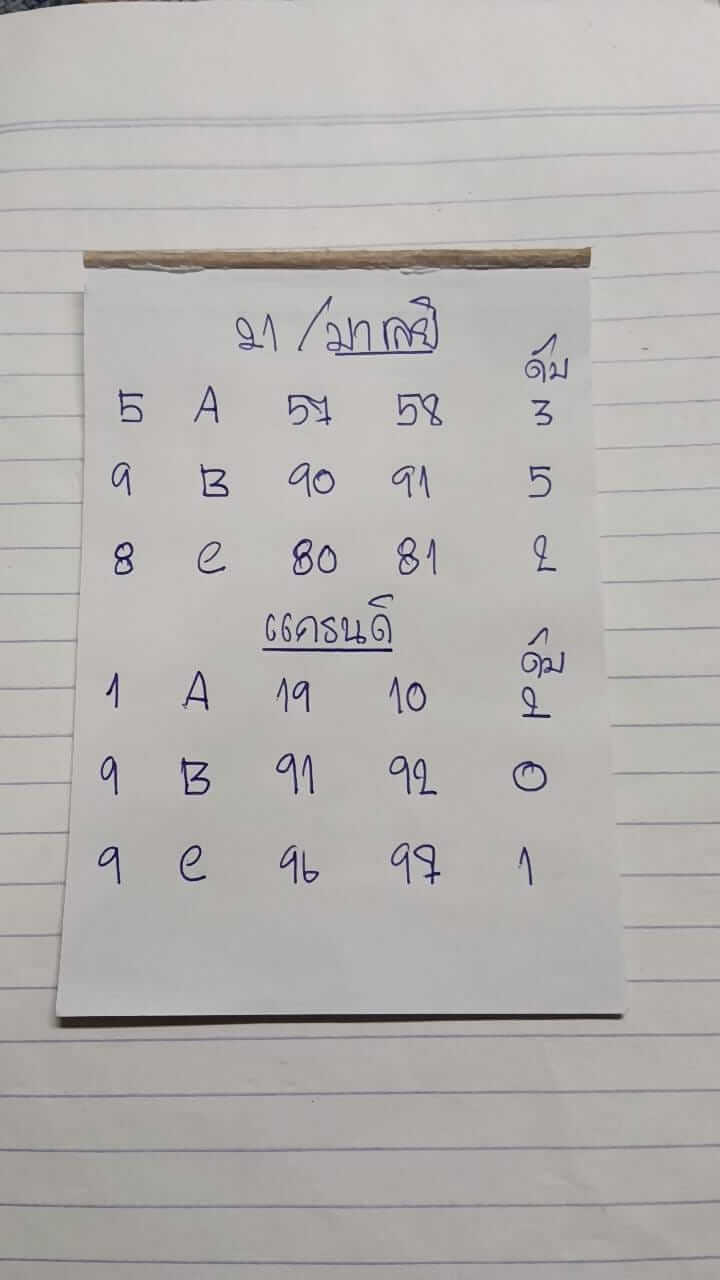 21 / มาเลย์
ดับ
5 A 57 58 3
9 B 90 91 5
8 C 80 81 2
แครนดี
ดับ
1 A 19 10 2
9 B 91 92 0
9 C 96 97 1